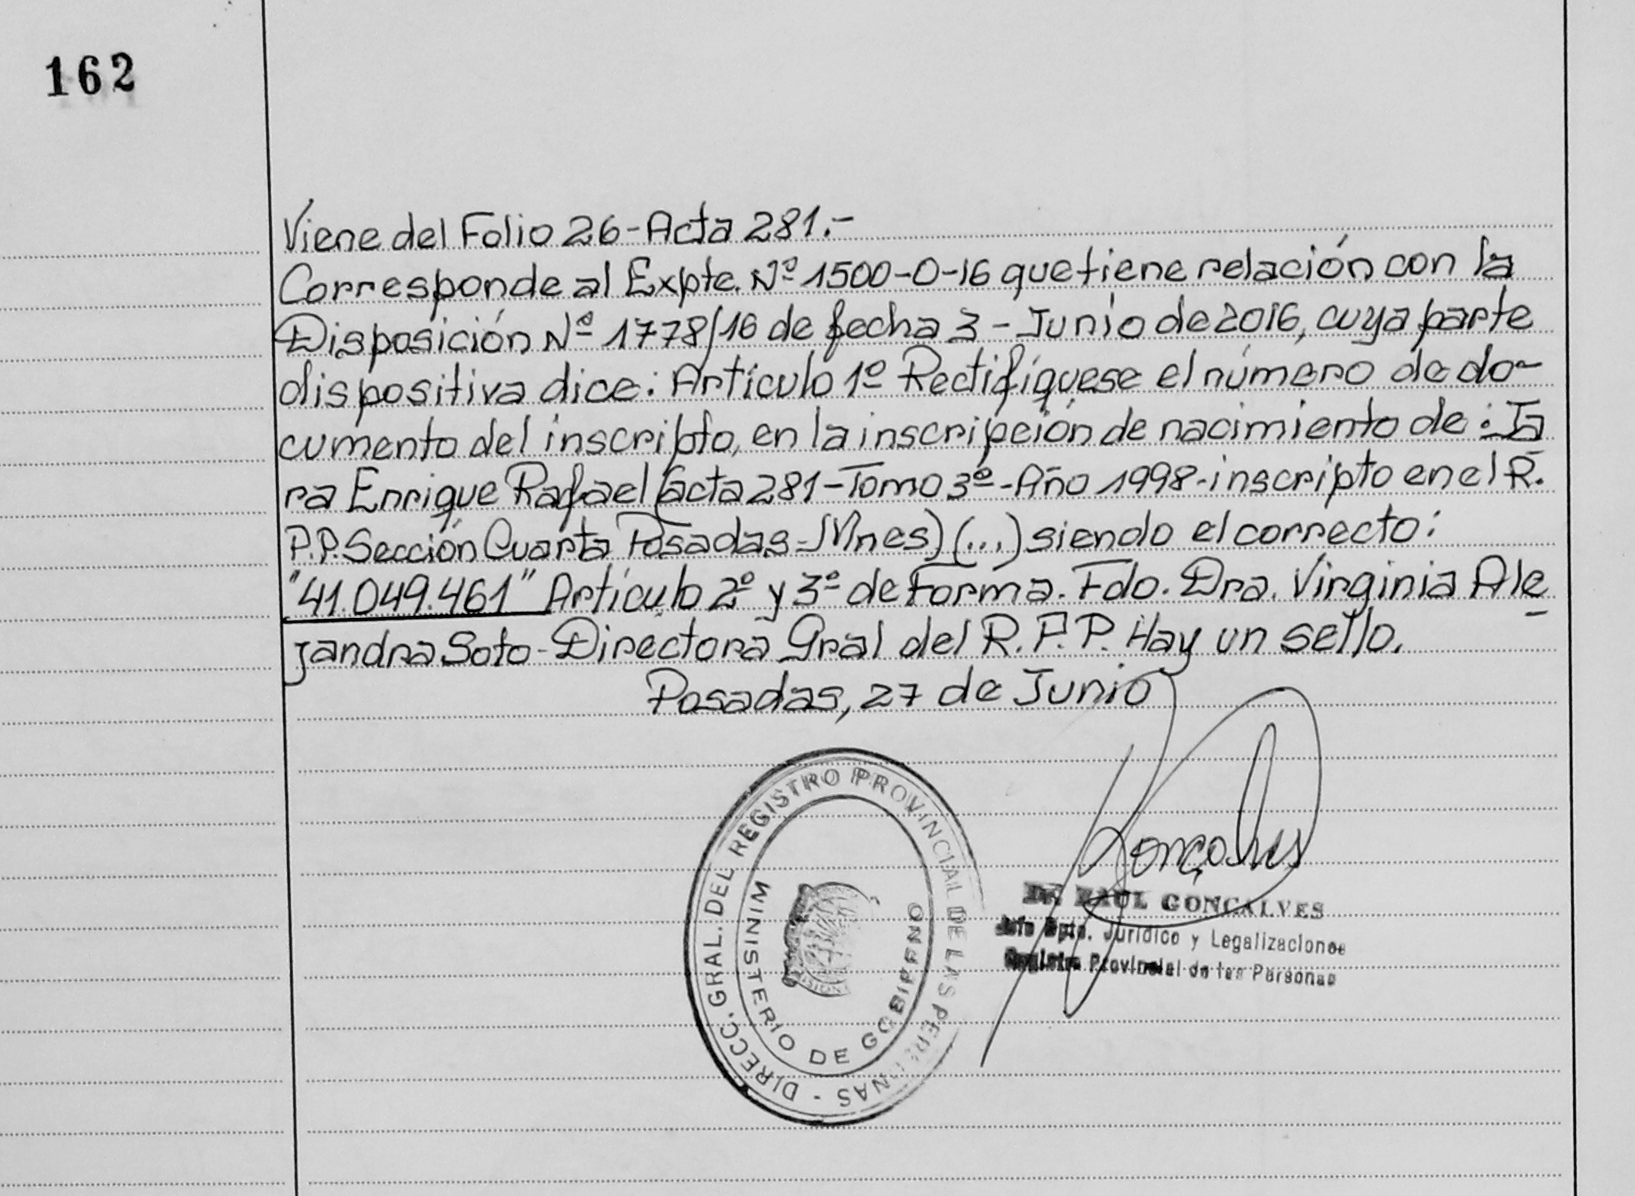 162
Viene del Folio 26-Acta 281.-
Corresponde al Expte. Nº 1500-O-16 que tiene relación con la
Disposición Nº 1778/16 de fecha 3 - Junio de 2016, cuya parte
dispositiva dice: Artículo 1º Rectifíquese el número de do-
cumento del inscripto, en la inscripción de nacimiento de: Ja
ra Enrique Rafael (acta 281-Tomo 3º-Año 1998-inscripto en el R.
P.P. Sección Cuarta Posadas-Mnes) (...) siendo el correcto:
"41.049.461" Artículo 2º y 3º de Forma. Fdo. Dra. Virginia Ale
jandra Soto-Directora Gral del R.P.P. Hay un sello.
Posadas, 27 de Junio
DIRECC. GRAL. DEL REGISTRO PROVINCIAL DE LAS PERSONAS -
MINISTERIO DE GOBIERNO
Gonçalves
Dr. RAUL GONCALVES
Jefe Dpto. Jurídico y Legalizaciones
Registro Provincial de las Personas